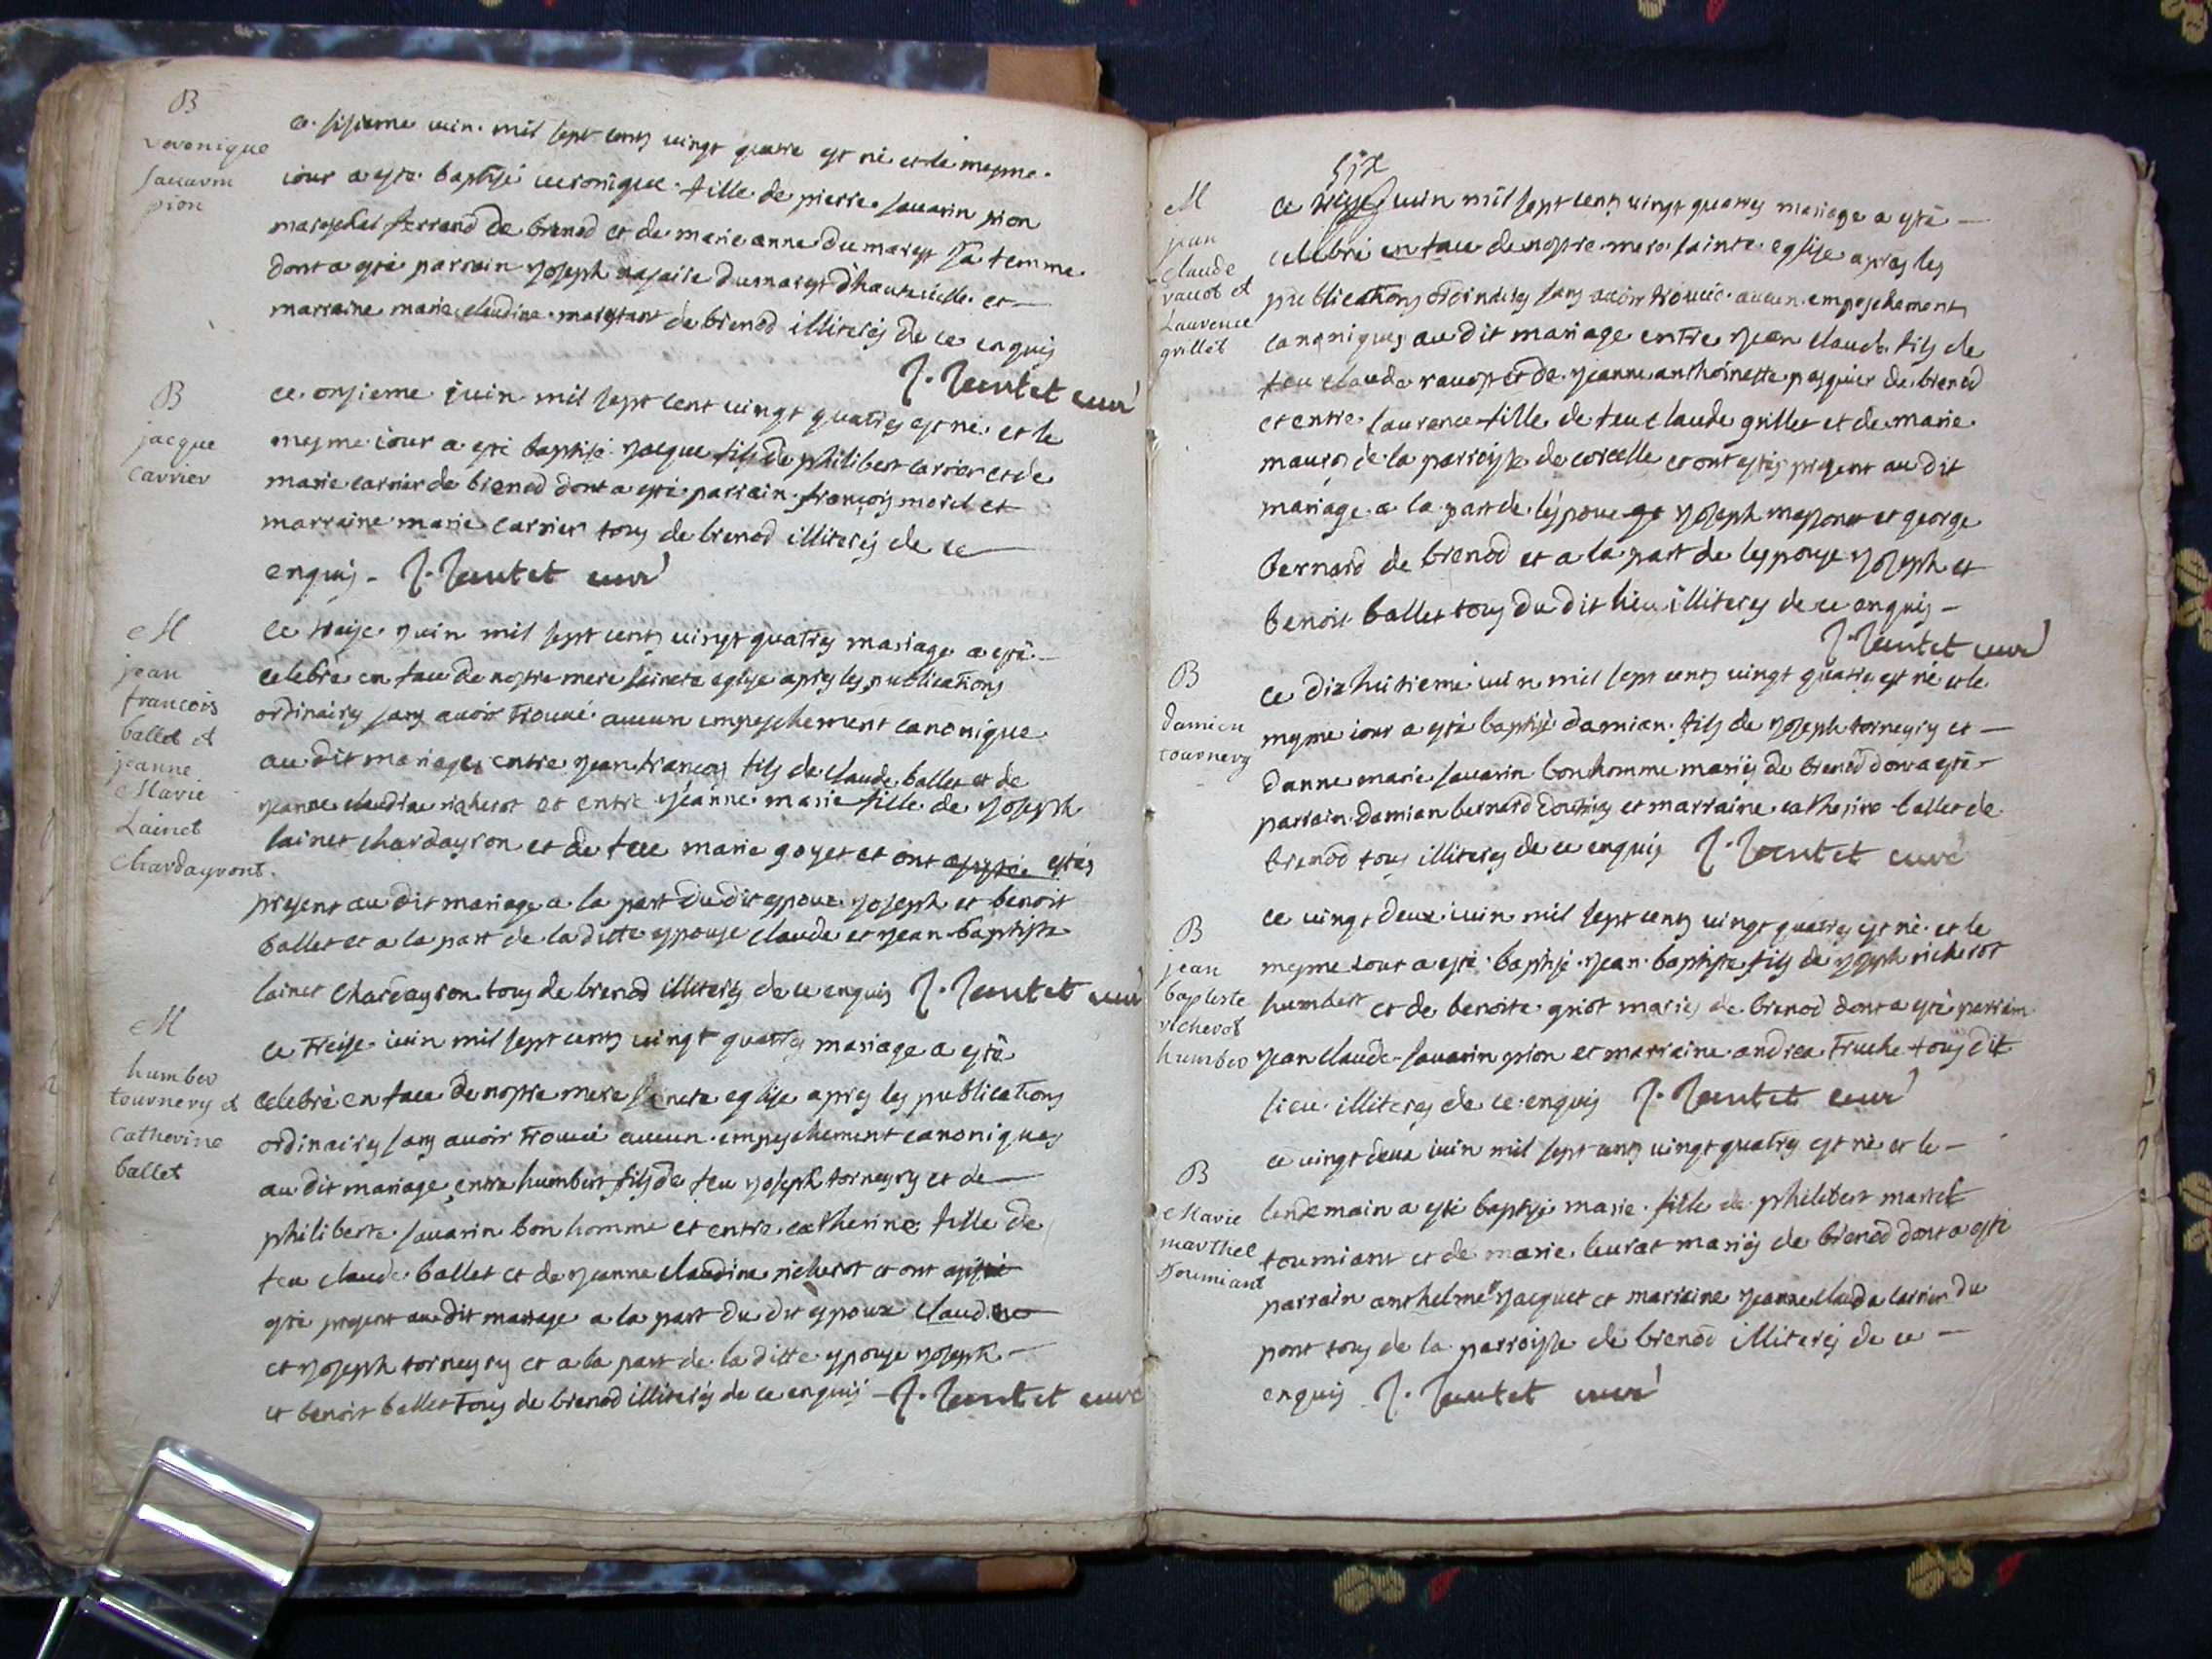 B
veronique
savarin
pion
ce sisieme iuin mil sept cents vingt quatre est né et le mesme
iour a esté baptisé veronique fille de pierre savarin pion
mareschal ferrand de brenod et de marie anne dumarest sa femme
dont a esté parrain joseph dumarest d'hauteville et
marraine marie claudine de brenod illiterés de ce enquis
J. Jantet curé
B
jacque
carrier
ce onsieme juin mil sept cent vingt quatres est né et le
mesme iour a esté baptisé jacque fils de philibert carrier et de
marie carrier de brenod dont a esté parrain françois morel et
marraine marie carrier tous de brenod illiterés de ce
enquis J. Jantet curé
M
jean
francois
ballet et
jeanne
Marie
Lainet
chardayront
ce treise juin mil sept cents vingt quatres mariage a esté
celebré en face de nostre mere saincte eglise apres les publications
ordinaires sans avoir trouvé aucun empeschement canonique
au dit mariage entre jean françois fils de claude ballet et de
jeanne claudine richerot et entre jeanne marie fille de joseph
lainet chardayron et de feue marie goyet et ont estés
present au dit mariage a la part du dit espoux joseph et benoit
ballet et a la part de la ditte espouse claude et jean baptiste
lainet chardayron tous de brenod illiterés de ce enquis J. Jantet curé
M
humber
tournery et
catherine
ballet
ce treise iuin mil sept cents vingt quatres mariage a esté
celebré en face de nostre mere saincte eglise apres les publications
ordinaires sans avoir trouvé aucun empeschement canoniques
au dit mariage entre humbert fils de feu joseph torneyry et de
philiberte savarin bon homme et entre catherine fille de
feu claude ballet et de jeanne claudine richerot et ont
esté present au dit mariage a la part du dit espoux claude
et joseph torneyry et a la part de la ditte espouse joseph
et benoit ballet tous de brenod illiterés de ce enquis J. Jantet curé
M
jean
claude
ravot et
Laurence
grillet
six
ce juin mil sept cents vingt quatres mariage a esté
celebré en face de nostre mere sainte eglise apres les
publications ordinaires sans avoir trouvé aucun empeschements
canoniques au dit mariage entre jean claude fils de
feu claude ravot et de jeanne anthoinette pasquier de brenod
et entre laurance fille de feu claude grillet et de marie
de la parroisse de corcelle et ont estés present au dit
mariage a la part de l'espoux joseph et george
bernard de brenod et a la part de lespouse joseph et
benoit ballet tous du dit lieu illiteres de ce enquis
J. Jantet curé
B
damien
tournery
ce dixhuitieme iuin mil sept cents vingt quatres est né et le
mesme iour a esté baptisé damian fils de joseph torneyry et
danne marie savarin bonhomme mariés de brenod dont a esté
parrain damian bernard et marraine catherine ballet de
brenod tous illiteres de ce enquis J. Jantet curé
B
jean
baptiste
richerot
humber
ce vingt deux iuin mil sept cents vingt quatres est né et le
mesme iour a esté baptisé jean baptiste fils de joseph richerot
humbert et de benoite griot mariés de brenod dont a esté parrain
jean claude savarin pion et marraine andrea truche tous dit
lieu illiteres de ce enquis J. Jantet curé
B
Marie
marthel
toumiant
ce vingt deux iuin mil sept cents vingt quatres est né et le
lendemain a esté baptisé marie fille de philibert martel
toumiant et de marie levrat mariés de brenod dont a esté
parrain anthelme jacquet et marraine jeanne claude carrier du
pont tous de la parroisse de brenod illiterés de ce
enquis J. Jantet curé